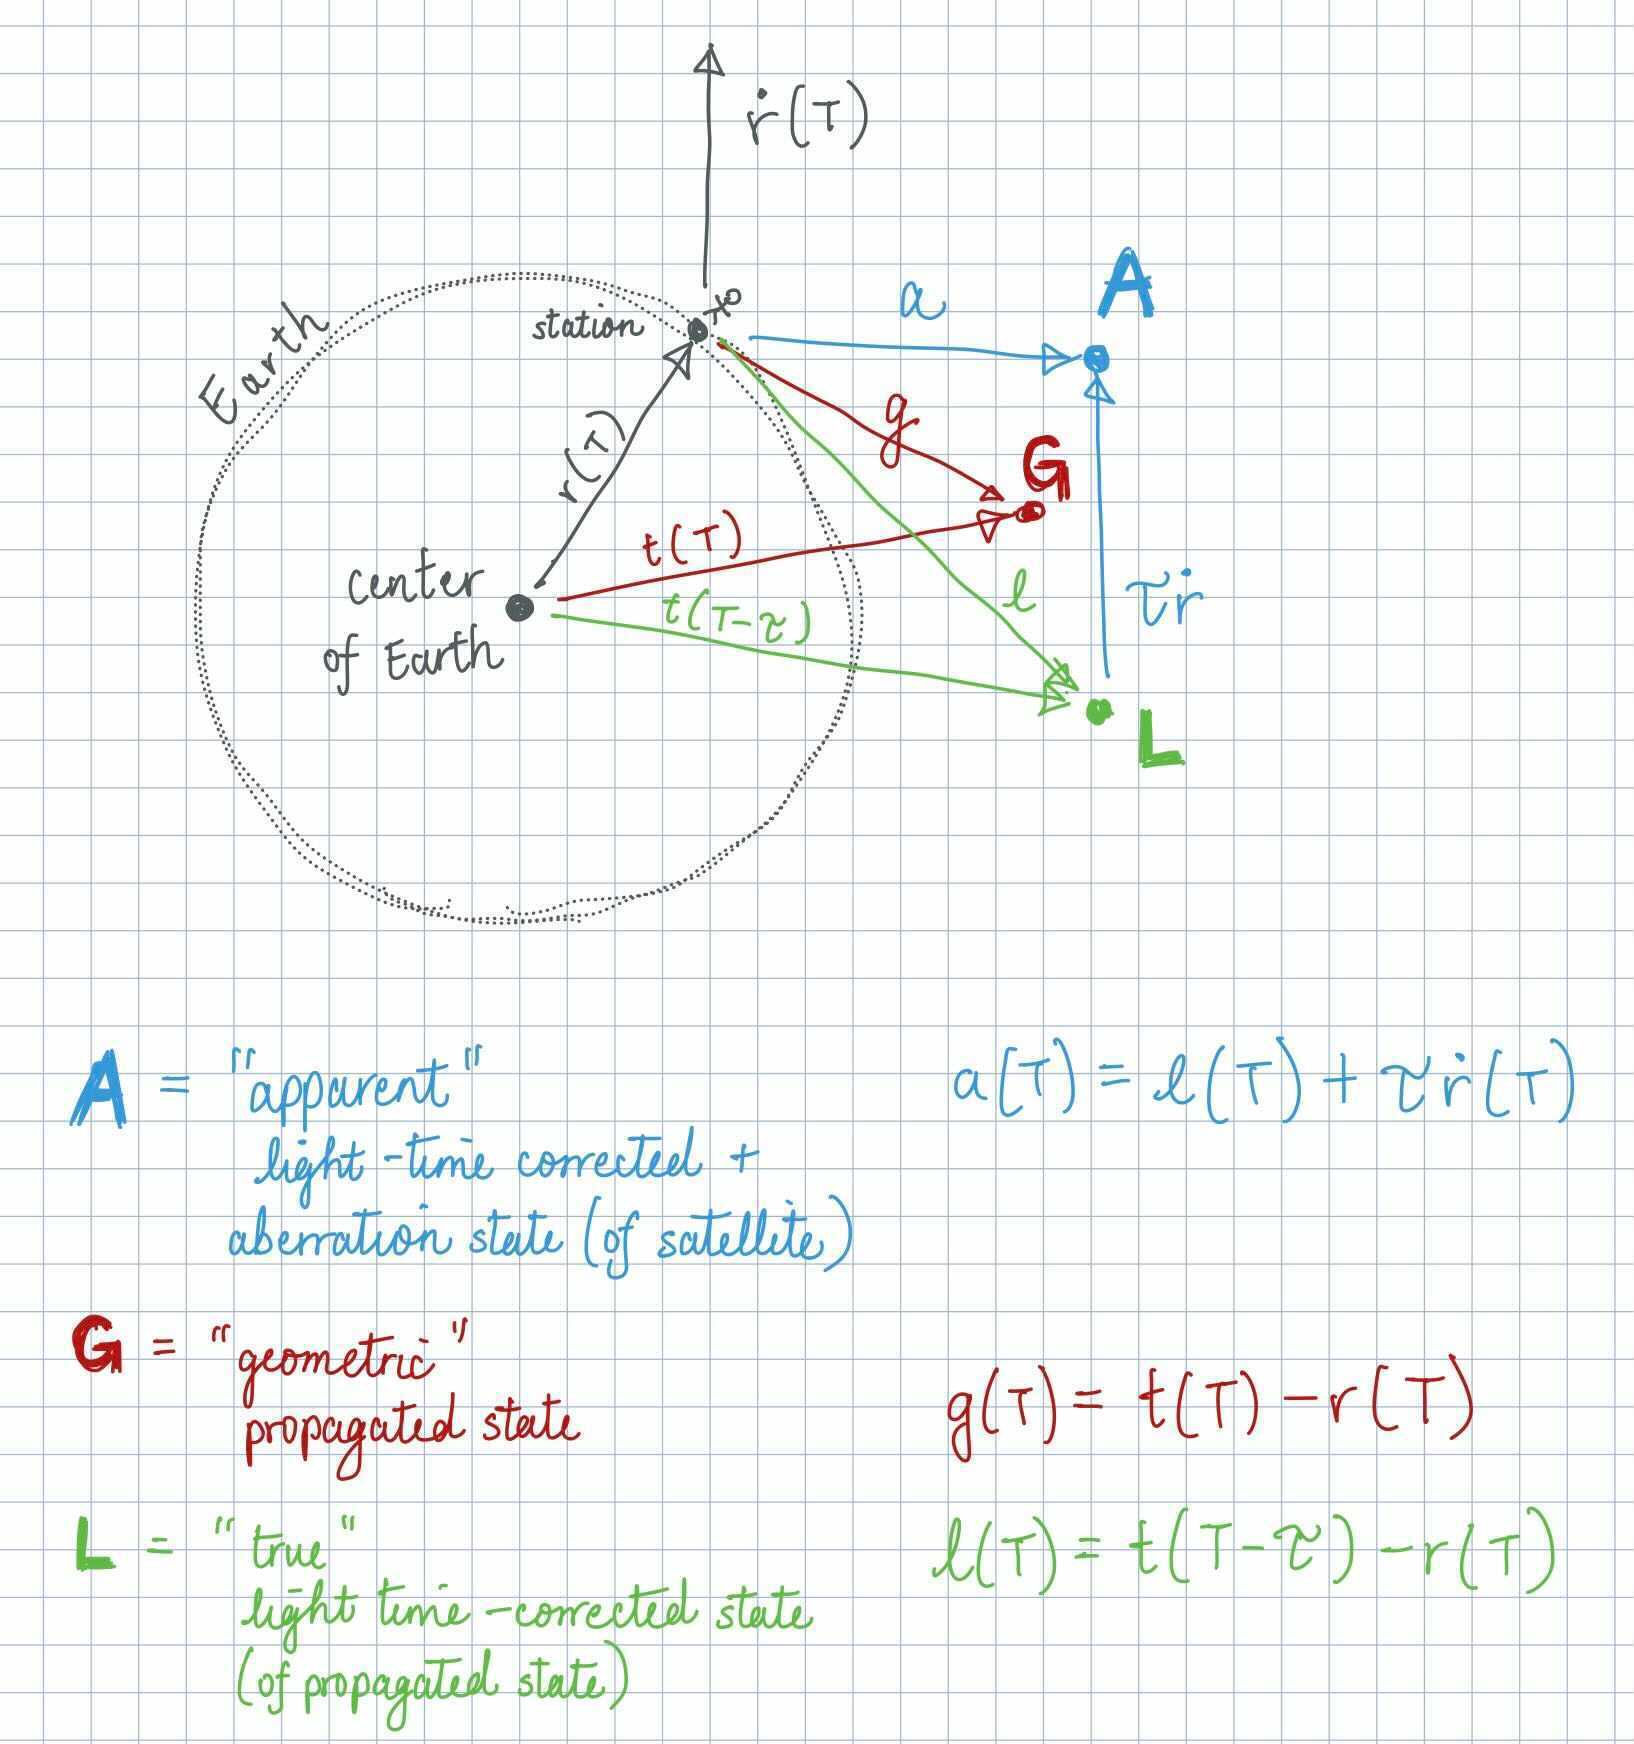 ṙ(T)
A
a
station
Earth
g
G
r(T)
t(T)
l
center
of Earth
t(T-τ)
τṙ
L
A = "apparent"
light-time corrected +
aberration state (of satellite)
a(T) = l(T) + τṙ(T)
G = "geometric"
propagated state
g(T) = t(T) - r(T)
L = "true"
light time-corrected state
(of propagated state)
l(T) = t(T-τ) - r(T)